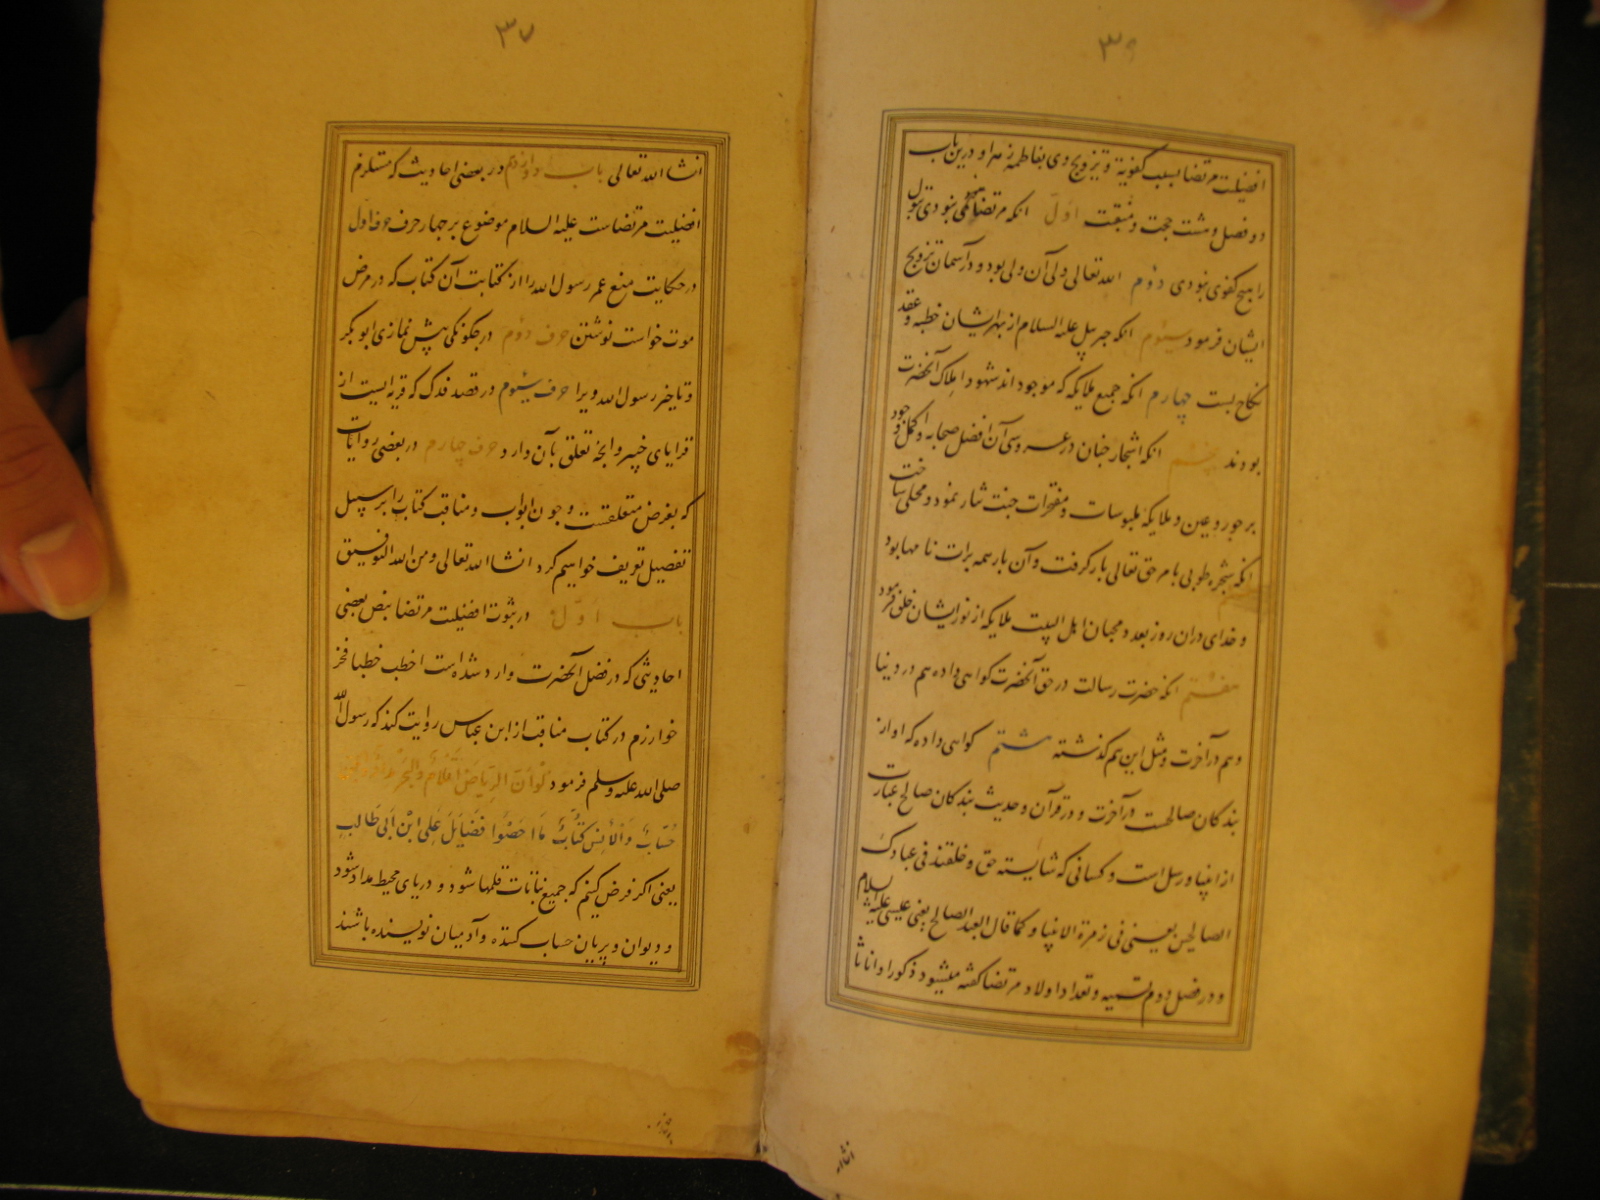 ۳۶
افضلیت مرتضا بسبب کفویة و تزویج وی بفاطمه زهرا و درین باب
دو فصل و هشت حجت و منقبت اول انکه مرتضا بنودی بتول
را هیچ کفوی بنودی دوم الله تعالی ولی آن ولی بود و در آسمان تزویج
ایشان فرمود سیوم انکه جبرییل علیه السلام از بهر ایشان خطبه و عقد
نکاح بست چهارم انکه جمیع ملایکه که موجود اند شهود املاک آنحضرت
بودند پنجم انکه اشجار جنان در عروسی آن افضل صحابه و اکمل
بر حور و عین و ملایکه ملبوسات و مفخرات جنت نثار نمود و محلی ساخت
ششم انکه شجره طوبی بامر حق تعالی بار کرفت و آن بار همه برات نامها بود
و خدای دران روز بعدد محبان اهل البیت ملایکه از نور ایشان خلق فرمود
هفتم انکه حضرت رسالت در حق آنحضرت کواهی داده هم در دنیا
و هم در آخرت و مثل این هم کذشته هشتم کواهی داده که او از
بندکان صالحست در آخرت و در قرآن و حدیث بندکان صالح عبارت
از انبیا و رسل است و کسانی که شایسته حق و خلقند فی عبادک
الصالحین یعنی فی زمرة الانبیاء و کما قال العبد الصالح یعنی عیسی علیه السلام
و در فصل دوم تسمیه و تعداد اولاد مرتضا کفته میشود ذکورا و اناثا
انشا
۳۷
انشا الله تعالی باب دوازدهم در بعضی احادیث که مستلزم
افضلیت مرتضاست علیه السلام موضوع بر چهار حرف حرف اول
در حکایت منع عمر رسول الله را از کتابت آن کتاب که در مرض
موت خواست نوشتن حرف دوم در چکونکی پیش نمازی ابو بکر
و تاخیر رسول الله ویرا حرف سیوم در قصه فدک که قریه ایست از
قرایای خیبر و انچه تعلق بآن دارد حرف چهارم در بعضی روایات
که بغرض متعلقست و چون ابواب و مناقب کتاب را بر سبیل
تفصیل تعریف خواهیم کرد انشا الله تعالی و من الله التوفیق
باب اول در ثبوت افضلیت مرتضا بنص بعضی
احادیثی که در فضل آنحضرت وارد شده است اخطب خطبا فخر
خوارزم در کتاب مناقب از ابن عباس روایت کند که رسول الله
صلی الله علیه و سلم فرمود لَو اَنَّ الرِیاضَ اَقلامٌ وَالبَحرَ مِدادٌ وَالجِنَّ
حُسّابٌ وَالاِنسَ کُتّابٌ مَا احصَوا فَضایلَ عَلی ابْن اَبی طالِب
یعنی اکر فرض کنیم که جمیع نباتات قلمها شود و دریای محیط مداد شود
و دیوان و پریان حساب کننده و آدمیان نویسنده باشند